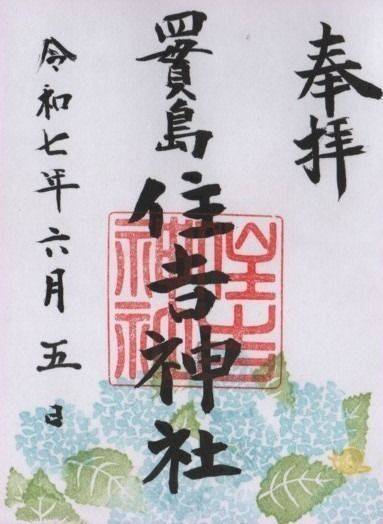 奉拝
四貫島
住吉神社
令和七年六月五日
住吉